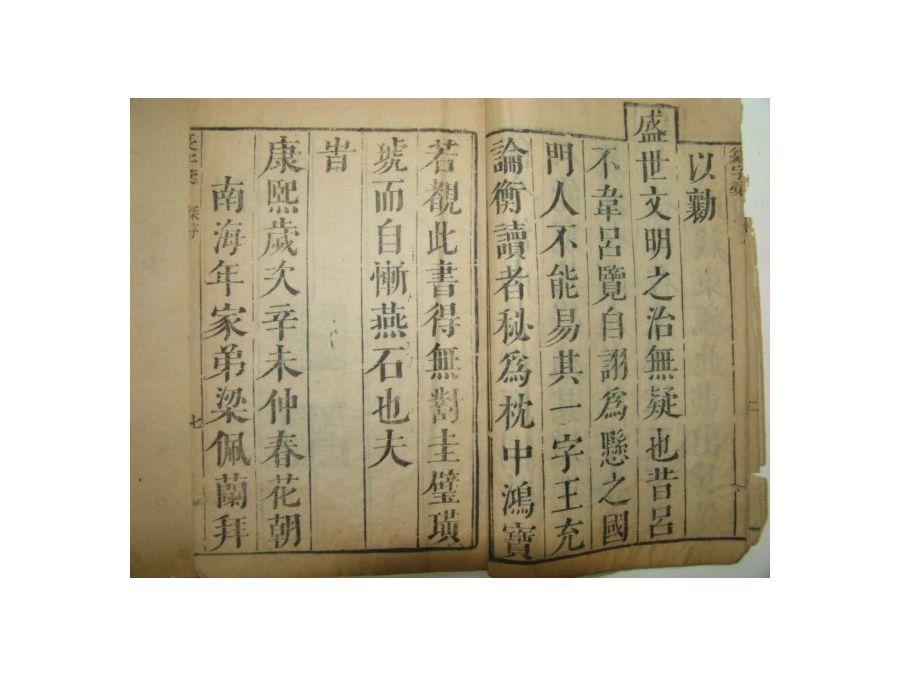 以勷
盛世文明之治無疑也昔呂
不韋呂覽自詡為懸之國
門人不能易其一字王充
論衡讀者秘為枕中鴻寶
若觀此書得無對圭璧璜
琥而自慚燕石也夫
旹
康熙歲次辛未仲春花朝
南海年家弟梁佩蘭拜
七